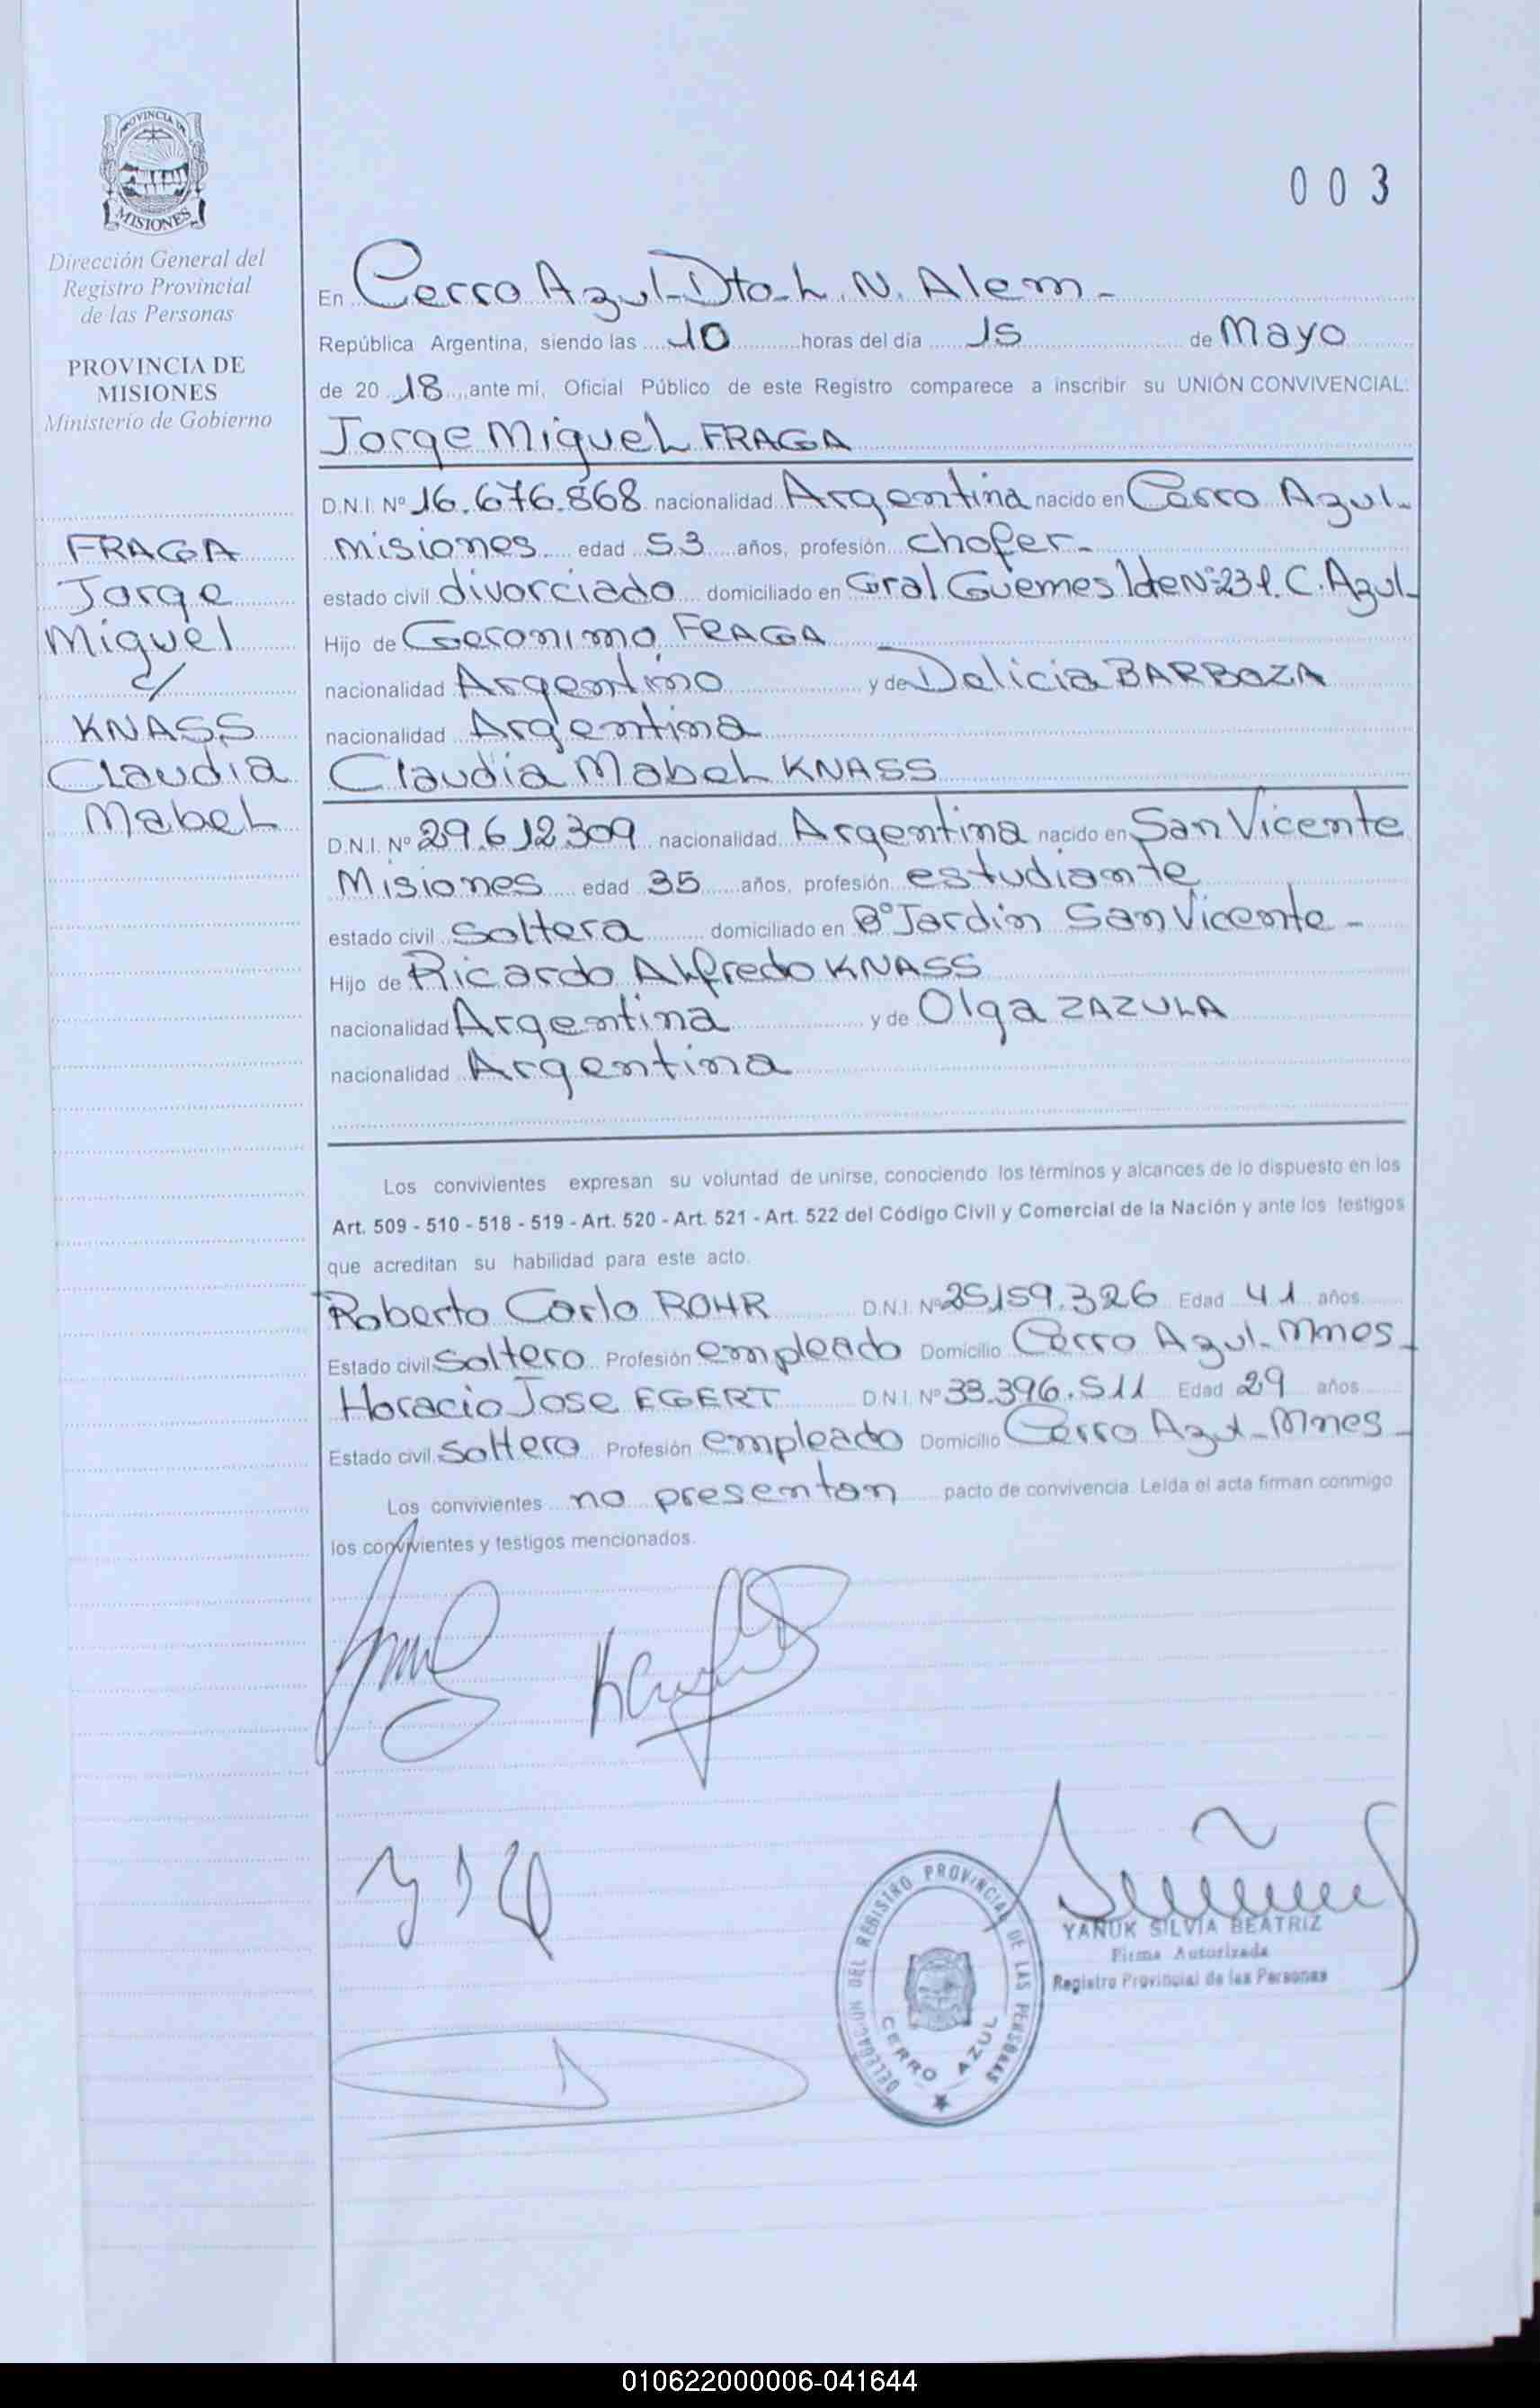 PROVINCIA DE
MISIONES
Dirección General del
Registro Provincial
de las Personas
PROVINCIA DE
MISIONES
Ministerio de Gobierno
FRAGA
Jorge
Miguel
c/
KNASS
Claudia
Mabel
003
En Cerro Azul-Dto-L.N. Alem-
República Argentina, siendo las 10 horas del día 15 de Mayo
de 20 18 ante mí, Oficial Público de este Registro comparece a inscribir su UNIÓN CONVIVENCIAL:
Jorge Miguel FRAGA
D.N.I. Nº 16.676.868 nacionalidad Argentina nacido en Cerro Azul-
Misiones edad 53 años, profesión chofer-
estado civil divorciado domiciliado en Gral Guemes C. Azul-
Hijo de Geronimo FRAGA
nacionalidad Argentino y de Delicia BARBOZA
nacionalidad Argentina
Claudia Mabel KNASS
D.N.I. Nº 29.612.309 nacionalidad Argentina nacido en San Vicente
Misiones edad 35 años, profesión estudiante
estado civil Soltera domiciliado en Bº Jardin San Vicente-
Hijo de Ricardo Alfredo KNASS
nacionalidad Argentina y de Olga ZAZULA
nacionalidad Argentina
Los convivientes expresan su voluntad de unirse, conociendo los términos y alcances de lo dispuesto en los
Art. 509 - 510 - 518 - 519 - Art. 520 - Art. 521 - Art. 522 del Código Civil y Comercial de la Nación y ante los testigos
que acreditan su habilidad para este acto.
Roberto Carlo ROHR D.N.I. Nº 25.159.326 Edad 41 años
Estado civil Soltero Profesión empleado Domicilio Cerro Azul-Mnes-
Horacio Jose EGERT D.N.I. Nº 33.396.511 Edad 29 años
Estado civil Soltero Profesión empleado Domicilio Cerro Azul-Mnes-
Los convivientes no presentan pacto de convivencia. Leída el acta firman conmigo
los convivientes y testigos mencionados.
DELEGACIÓN DEL REGISTRO PROVINCIAL DE LAS PERSONAS
CERRO AZUL
YAÑUK SILVIA BEATRIZ
Firma Autorizada
Registro Provincial de las Personas
010622000006-041644